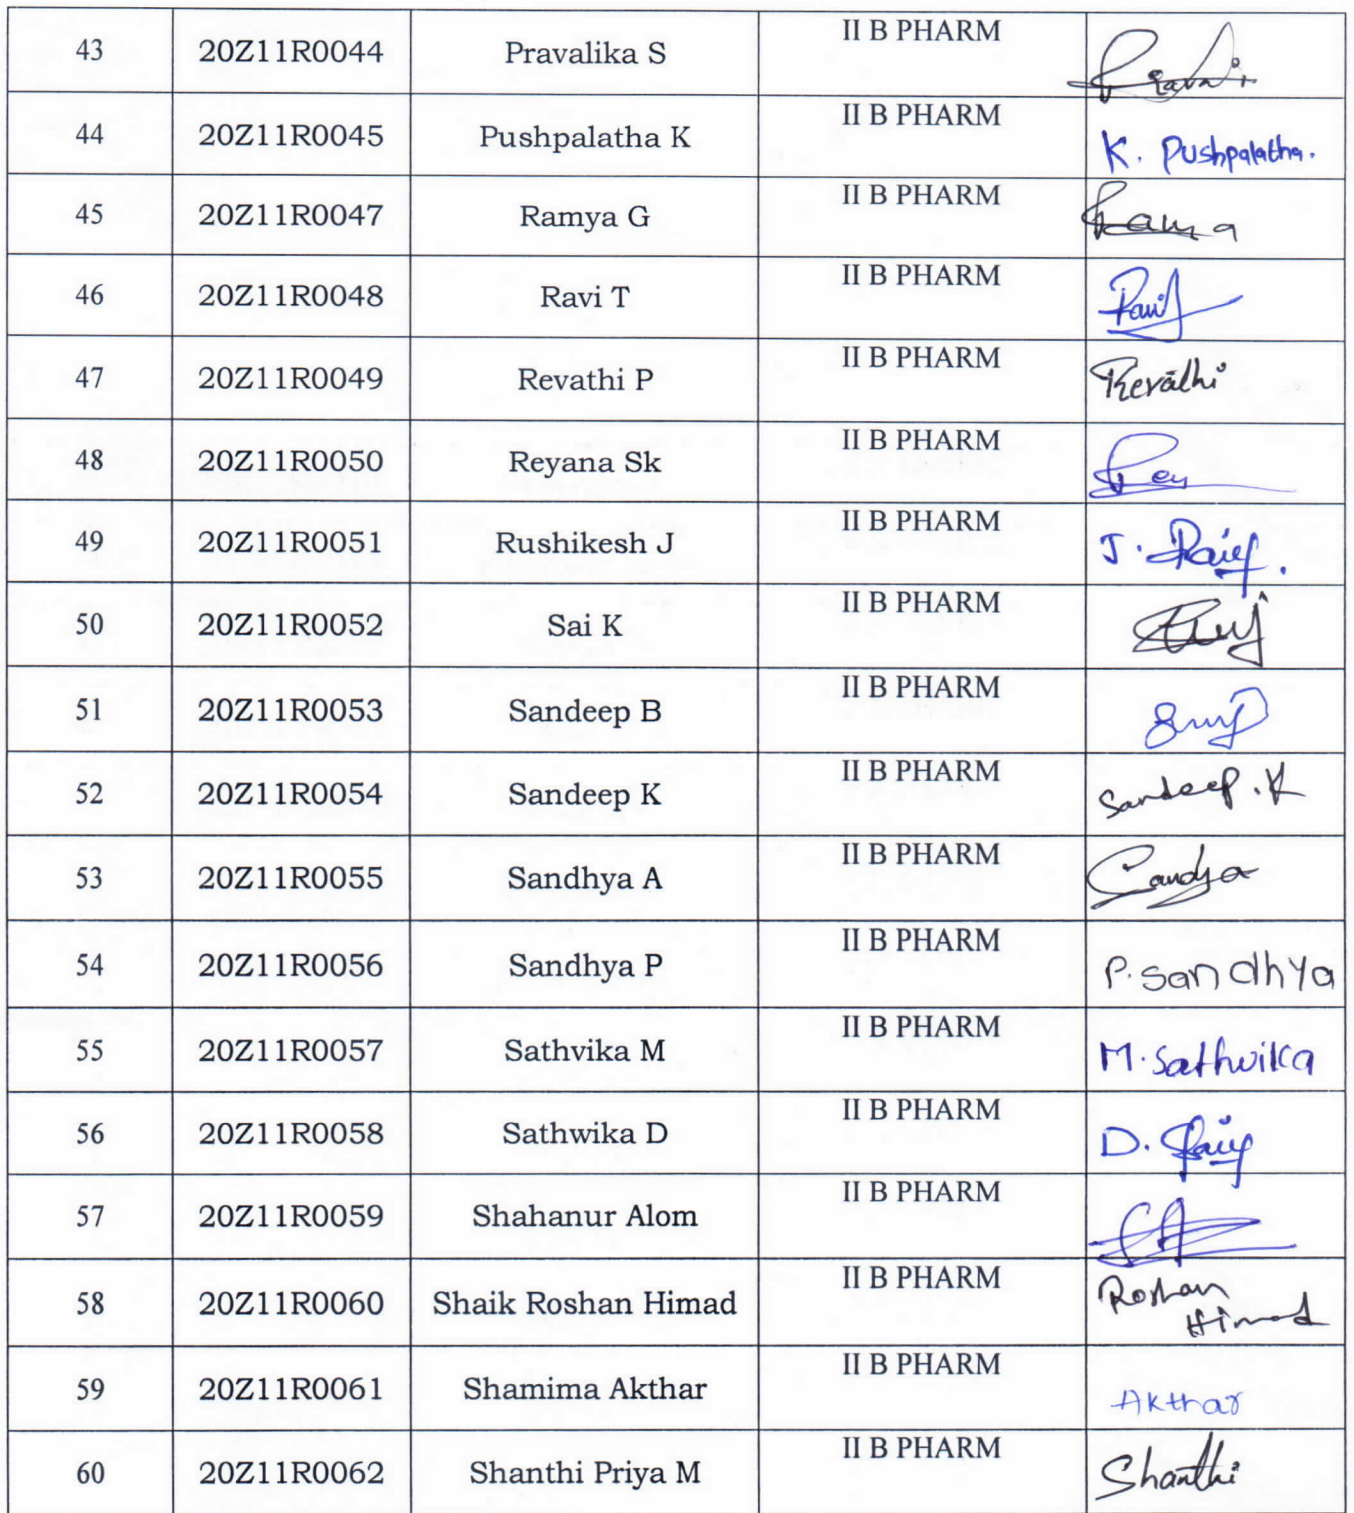 43 20Z11R0044 Pravalika S II B PHARM Pravali
44 20Z11R0045 Pushpalatha K II B PHARM K. Pushpalatha.
45 20Z11R0047 Ramya G II B PHARM
46 20Z11R0048 Ravi T II B PHARM Ravi
47 20Z11R0049 Revathi P II B PHARM Revathi
48 20Z11R0050 Reyana Sk II B PHARM Rey
49 20Z11R0051 Rushikesh J II B PHARM J.
50 20Z11R0052 Sai K II B PHARM
51 20Z11R0053 Sandeep B II B PHARM
52 20Z11R0054 Sandeep K II B PHARM Sandeep.K
53 20Z11R0055 Sandhya A II B PHARM Sandya
54 20Z11R0056 Sandhya P II B PHARM P.Sandhya
55 20Z11R0057 Sathvika M II B PHARM M.Sathvika
56 20Z11R0058 Sathwika D II B PHARM D.
57 20Z11R0059 Shahanur Alom II B PHARM SA
58 20Z11R0060 Shaik Roshan Himad II B PHARM Roshan
Himad
59 20Z11R0061 Shamima Akthar II B PHARM Akthar
60 20Z11R0062 Shanthi Priya M II B PHARM Shanthi